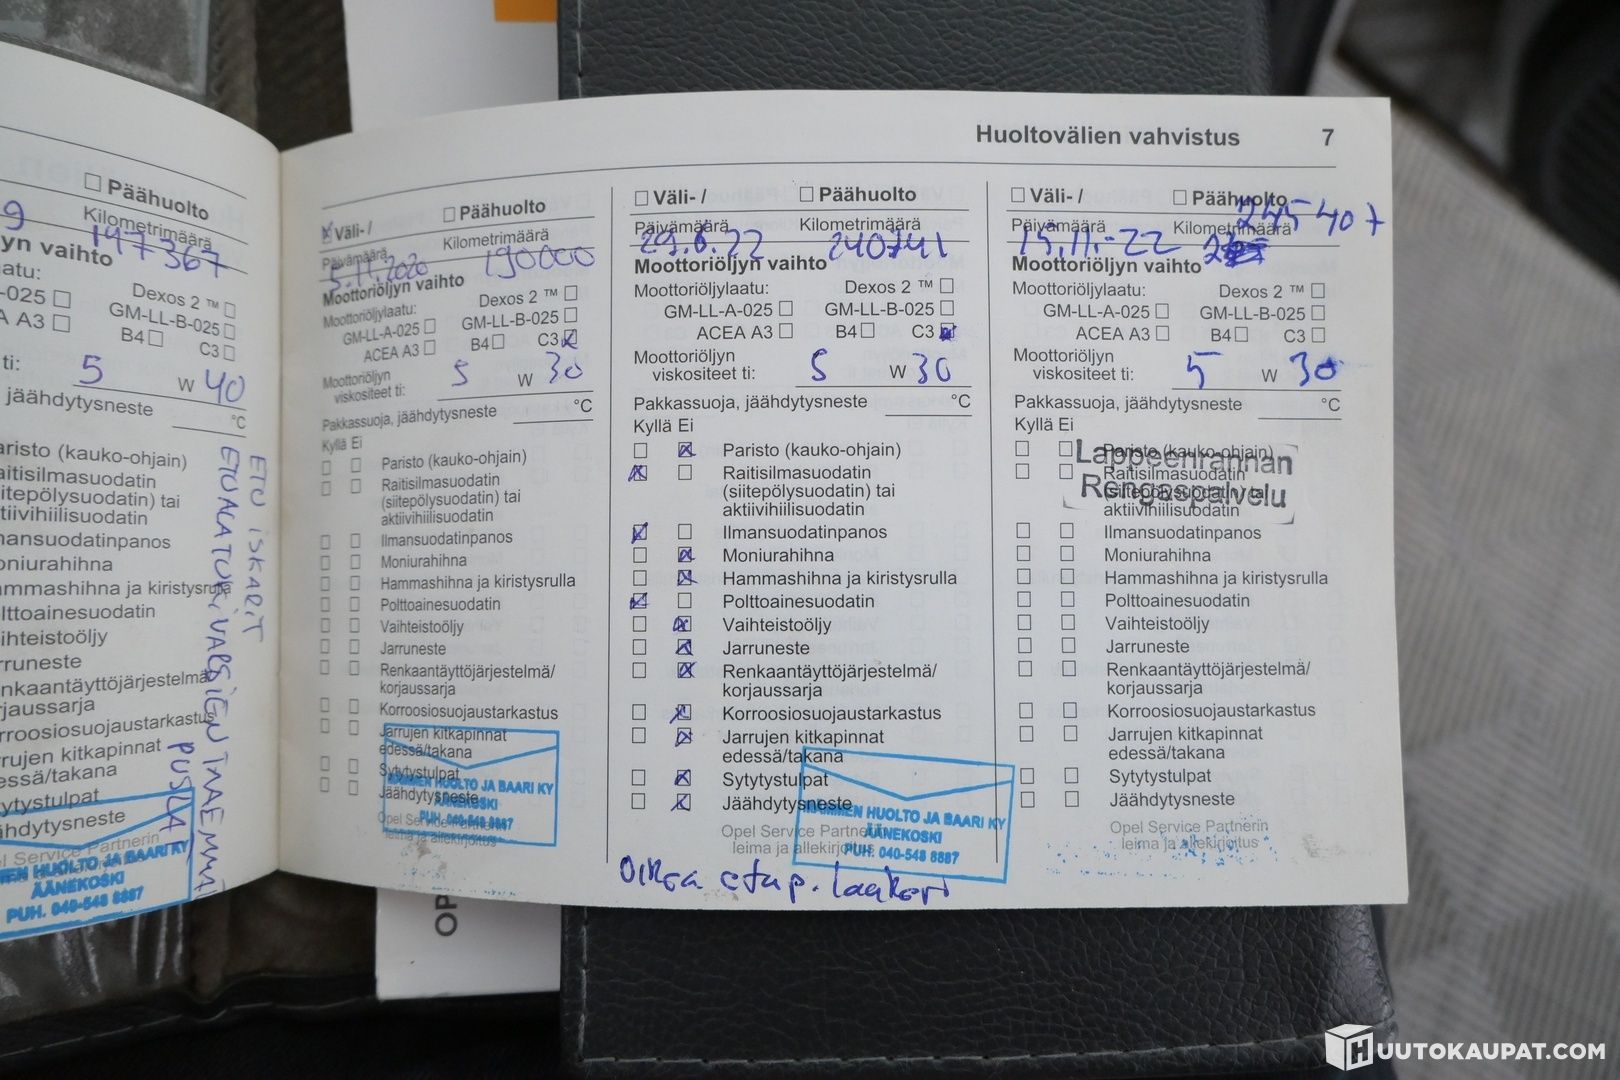 Huoltovälien vahvistus 7
☐ Päähuolto
Kilometrimäärä
9 147367
yn vaihto
aatu:
Dexos 2 ™ ☐
-025 ☐ GM-LL-B-025 ☐
A A3 ☐ B4 ☐ C3 ☐
ti: 5 W 40
jäähdytysneste °C
aristo (kauko-ohjain)
aitisilmasuodatin
iitepölysuodatin) tai
ktiivihiilisuodatin
mansuodatinpanos
oniurahihna
ammashihna ja kiristysrulla
olttoainesuodatin
aihteistoöljy
rruneste
enkaantäyttöjärjestelmä/
rjaussarja
rroosiosuojaustarkastus
rrujen kitkapinnat
essä/takana
ytytystulpat
ähdytysneste
el Service Partnerin
MEN HUOLTO JA BAARI KY
ÄÄNEKOSKI
PUH. 040-548 8887
ETU ISKARIT
ETUALATUKIVARSIEN TAEMMAT
PUSLA
☒ Väli- / ☐ Päähuolto
Päivämäärä Kilometrimäärä
5.11.2020 190000
Moottoriöljyn vaihto
Moottoriöljylaatu: Dexos 2 ™ ☐
GM-LL-A-025 ☐ GM-LL-B-025 ☐
ACEA A3 ☐ B4 ☐ C3 ☒
Moottoriöljyn
viskositeet ti: 5 W 30
Pakkassuoja, jäähdytysneste °C
Kyllä Ei
☐ ☐ Paristo (kauko-ohjain)
☐ ☐ Raitisilmasuodatin
(siitepölysuodatin) tai
aktiivihiilisuodatin
☐ ☐ Ilmansuodatinpanos
☐ ☐ Moniurahihna
☐ ☐ Hammashihna ja kiristysrulla
☐ ☐ Polttoainesuodatin
☐ ☐ Vaihteistoöljy
☐ ☐ Jarruneste
☐ ☐ Renkaantäyttöjärjestelmä/
korjaussarja
☐ ☐ Korroosiosuojaustarkastus
☐ ☐ Jarrujen kitkapinnat
edessä/takana
☐ ☐ Sytytystulpat
☐ ☐ Jäähdytysneste
Opel Service Partnerin
leima ja allekirjoitus
MÄMMEN HUOLTO JA BAARI KY
ÄÄNEKOSKI
PUH. 040-548 8887
☐ Väli- / ☐ Päähuolto
Päivämäärä Kilometrimäärä
29.6.22 240741
Moottoriöljyn vaihto
Moottoriöljylaatu: Dexos 2 ™ ☐
GM-LL-A-025 ☐ GM-LL-B-025 ☐
ACEA A3 ☐ B4 ☐ C3 ☒
Moottoriöljyn
viskositeet ti: 5 W 30
Pakkassuoja, jäähdytysneste °C
Kyllä Ei
☐ ☒ Paristo (kauko-ohjain)
☒ ☐ Raitisilmasuodatin
(siitepölysuodatin) tai
aktiivihiilisuodatin
☒ ☐ Ilmansuodatinpanos
☐ ☒ Moniurahihna
☐ ☒ Hammashihna ja kiristysrulla
☒ ☐ Polttoainesuodatin
☐ ☒ Vaihteistoöljy
☐ ☒ Jarruneste
☐ ☒ Renkaantäyttöjärjestelmä/
korjaussarja
☐ ☒ Korroosiosuojaustarkastus
☐ ☒ Jarrujen kitkapinnat
edessä/takana
☐ ☒ Sytytystulpat
☐ ☒ Jäähdytysneste
Opel Service Partnerin
leima ja allekirjoitus
MÄMMEN HUOLTO JA BAARI KY
ÄÄNEKOSKI
PUH. 040-548 8887
Oikea etup. laakeri
☐ Väli- / ☐ Päähuolto
Päivämäärä Kilometrimäärä
15.11.-22 245407
Moottoriöljyn vaihto
Moottoriöljylaatu: Dexos 2 ™ ☐
GM-LL-A-025 ☐ GM-LL-B-025 ☐
ACEA A3 ☐ B4 ☐ C3 ☐
Moottoriöljyn
viskositeet ti: 5 W 30
Pakkassuoja, jäähdytysneste °C
Kyllä Ei
☐ ☐ Paristo (kauko-ohjain)
☐ ☐ Raitisilmasuodatin
(siitepölysuodatin) tai
aktiivihiilisuodatin
Lappeenrannan
Rengaspalvelu
☐ ☐ Ilmansuodatinpanos
☐ ☐ Moniurahihna
☐ ☐ Hammashihna ja kiristysrulla
☐ ☐ Polttoainesuodatin
☐ ☐ Vaihteistoöljy
☐ ☐ Jarruneste
☐ ☐ Renkaantäyttöjärjestelmä/
korjaussarja
☐ ☐ Korroosiosuojaustarkastus
☐ ☐ Jarrujen kitkapinnat
edessä/takana
☐ ☐ Sytytystulpat
☐ ☐ Jäähdytysneste
Opel Service Partnerin
leima ja allekirjoitus
OP
HUUTOKAUPAT.COM